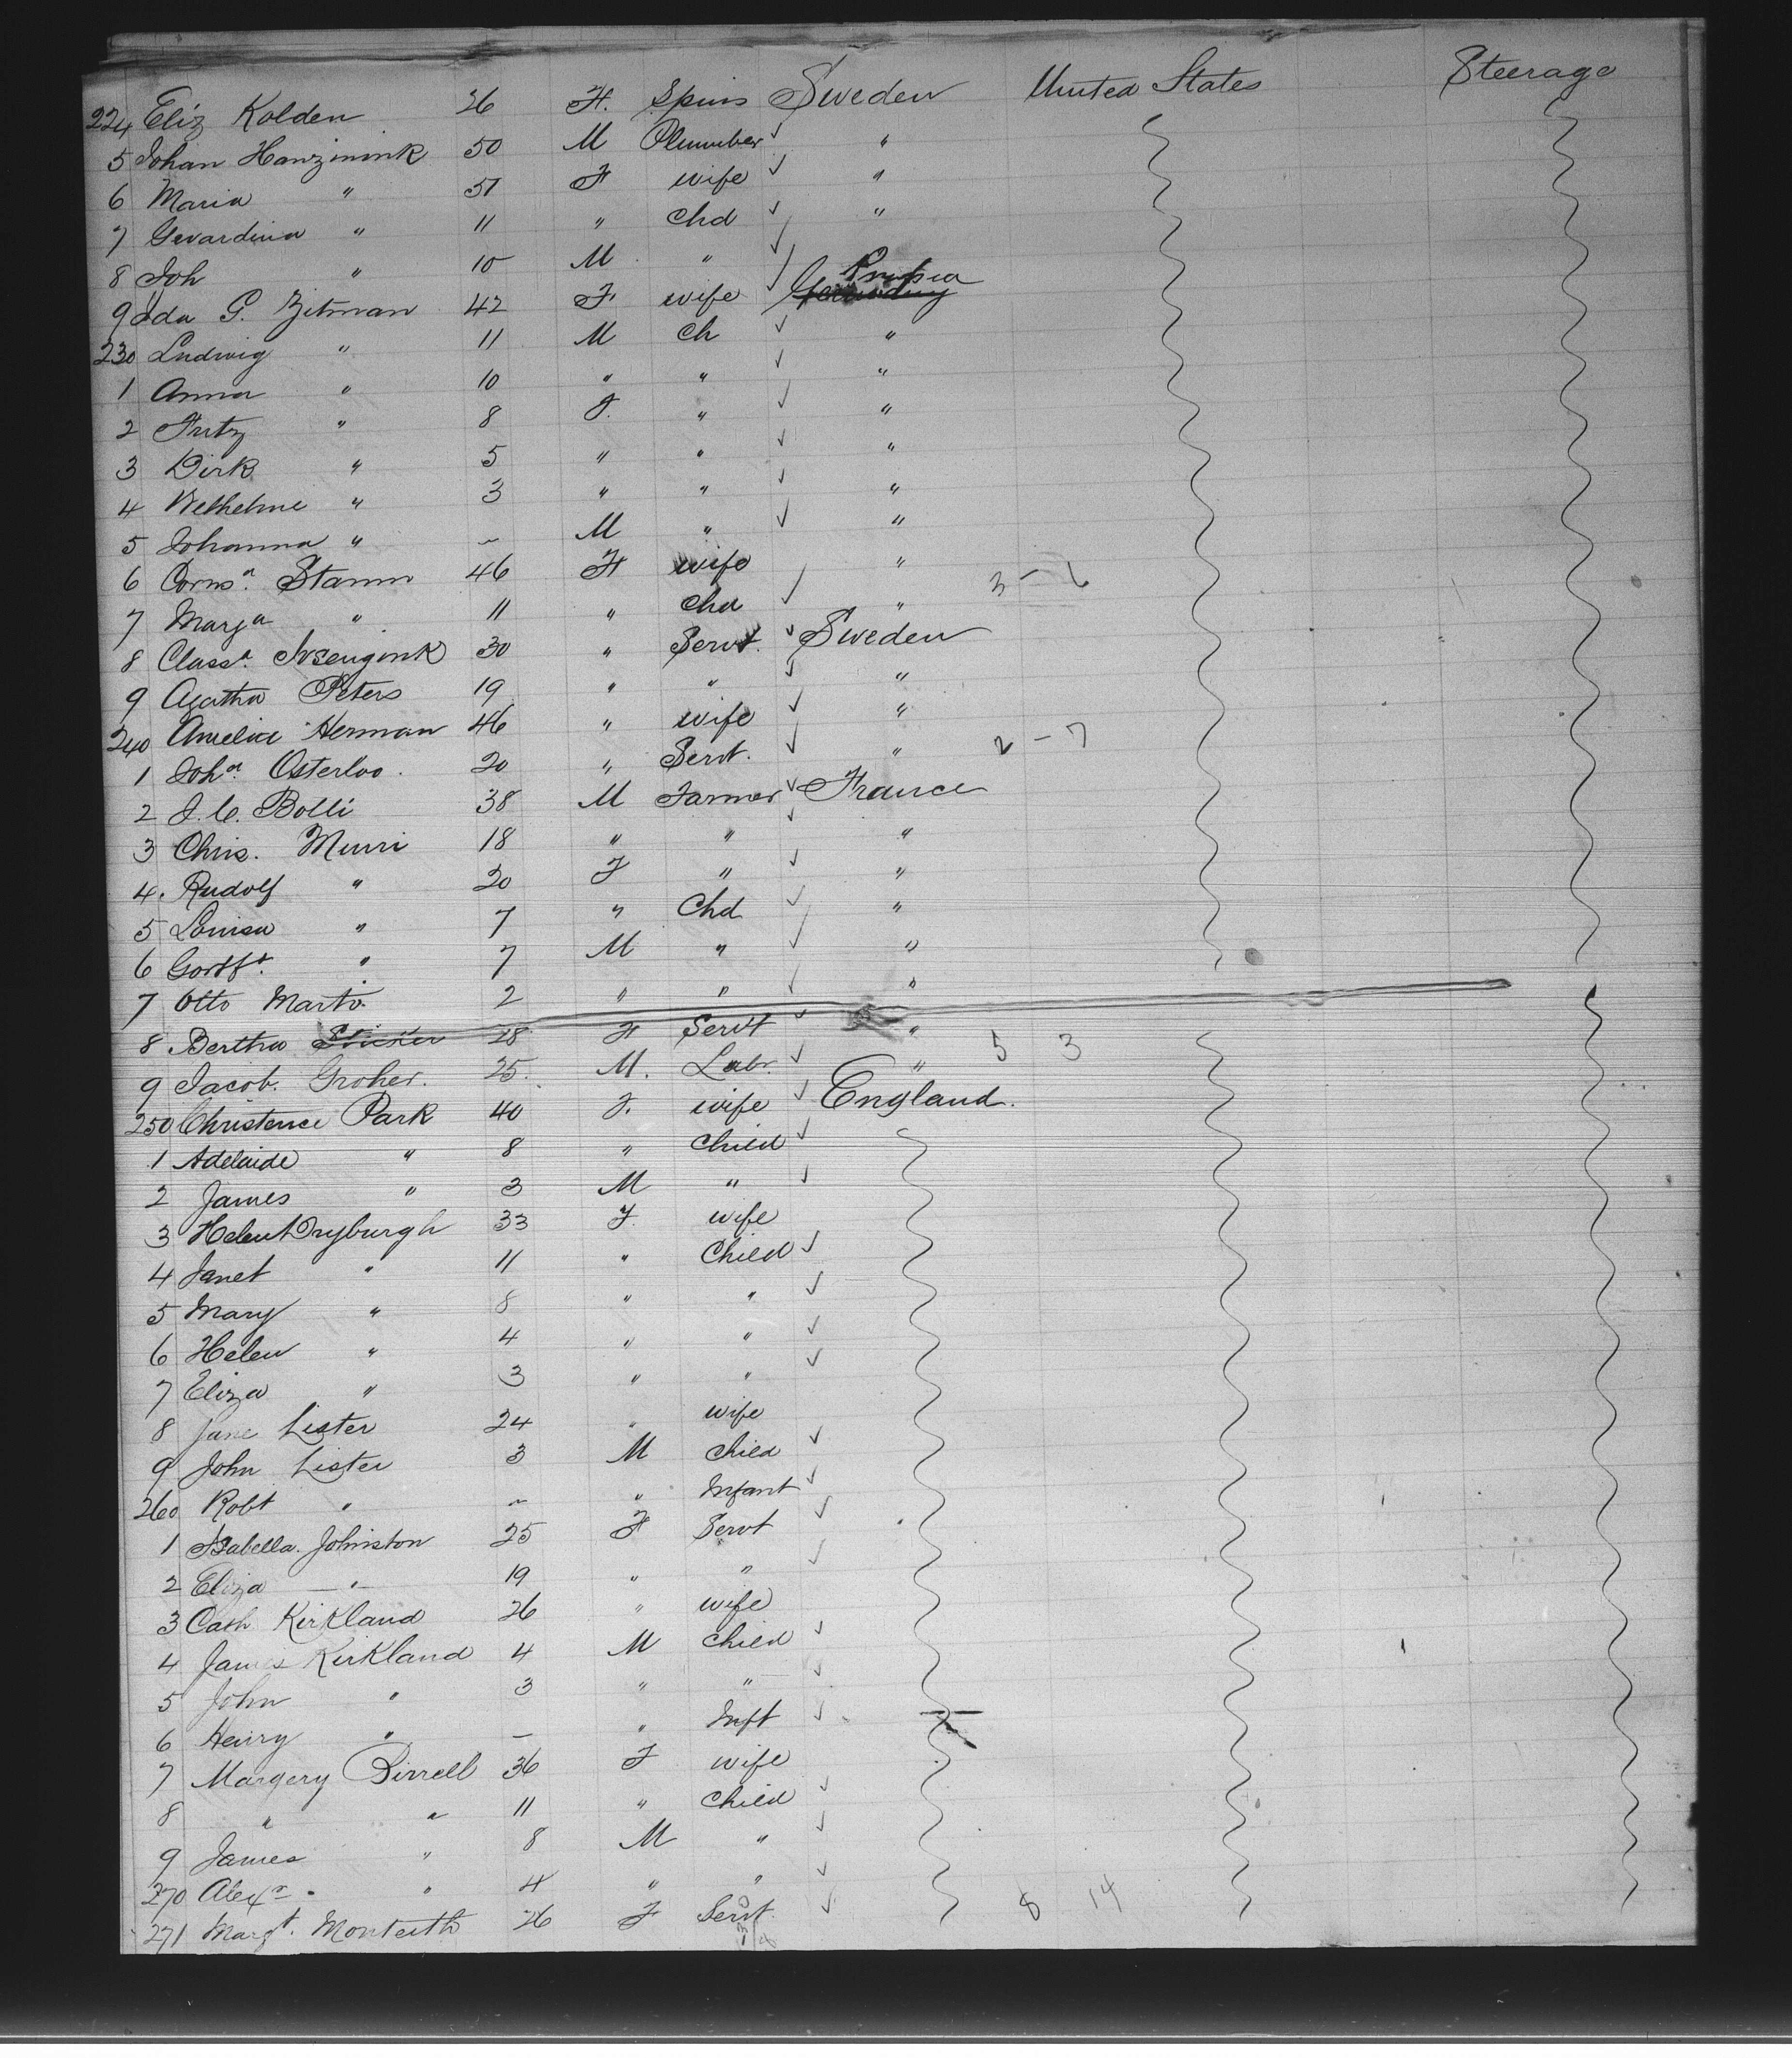 224 Eliz Kolden 26 F. Spins Sweden United States Steerage
5 Johan Hanzinink 50 M Plumber "
6 Maria " 51 F wife "
7 Gerardina " 11 " Chd "
8 Joh " 10 M "
9 Ida G. Zitman 42 F wife Germany Prussia
230 Ludwig " 11 M Ch "
1 Anna " 10 " " "
2 Fritz " 8 F. " "
3 Dirk " 5 " " "
4 Welhelme " 3 " " "
5 Johanna " ~ M " "
6 Corns a. Stamm 46 F wife "
7 Marg a " 11 " Chd " 3 - 6
8 Class a. 30 " Servt. Sweden
9 Agatha Peters 19 " " "
240 Amelice Herman 46 " wife "
1 Joh a. Osterloo. 20 " Servt. " 2 - 7
2 J. C. Bolli 38 M Farmer France
3 Chris. Murri 18 " " "
4. Rudolf " 20 F " "
5 Louisa " 7 " Chd "
6 " 7 M " "
7 Otto Marto 2 " " "
8 Bertha 28 F Servt "
9 Jacob. Groher. 25. M. Labr. " 5 3
250 Christence Park 40 F. wife England.
1 Adelaide " 8 " Child
2 James " 3 M "
3 Helen Dryburgh 33 F. wife
4 Janet " 11 " Child
5 Mary " 8 " "
6 Helen " 4 " "
7 Eliza " 3 " "
8 Jane Lister 24 " wife
9 John Lister 3 M Child
260 Robt " ~ " Infant
1 Isabella. Johnston 25 F Servt
2 Eliza — " — 19 " "
3 Cath Kirkland 26 " wife
4 James Kirkland 4 M Child
5 John " 3 " "
6 Henry " — " Inft
7 Margery Birrell 36 F wife
8 " " 11 " Child
9 James " 8 M "
270 Alexr. " 4 " "
271 Margt. Monteith 26 F Servt. 8 14